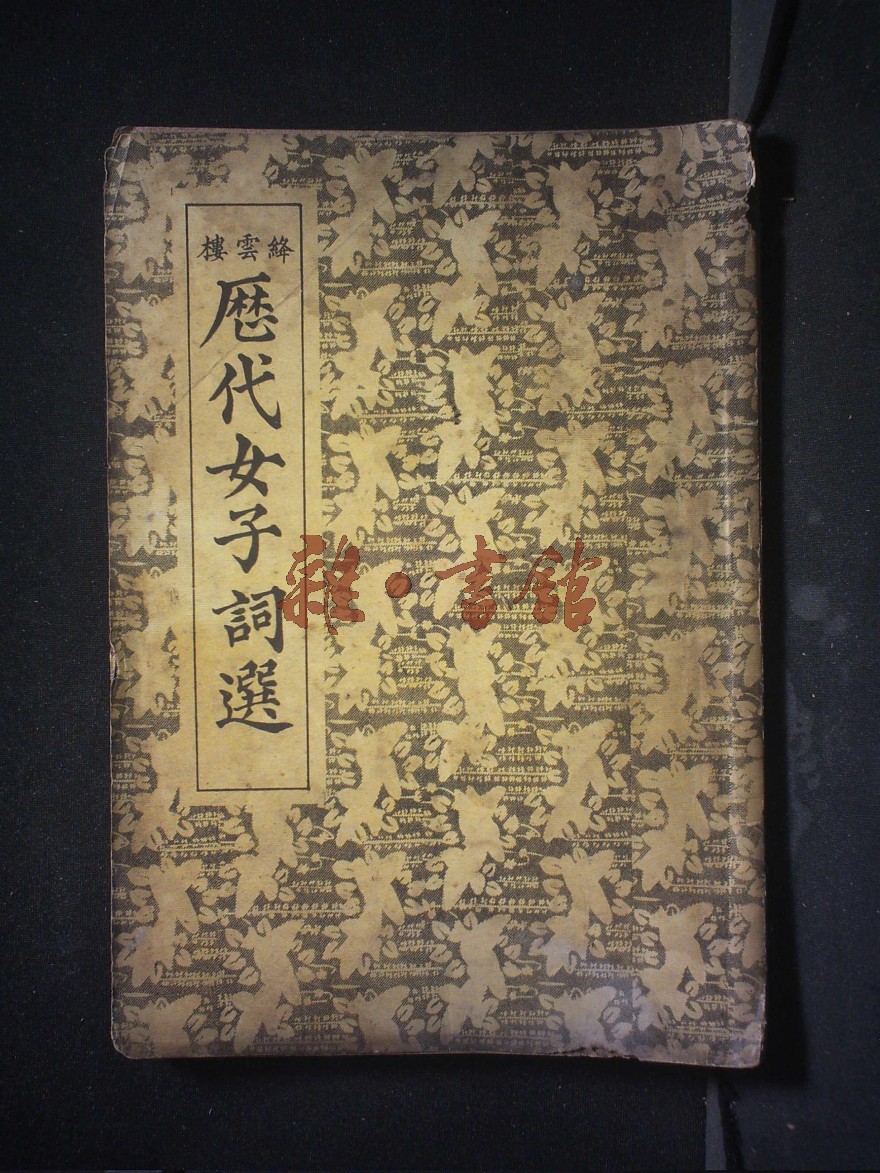 絳雲樓
歷代女子詞選
雜·書館